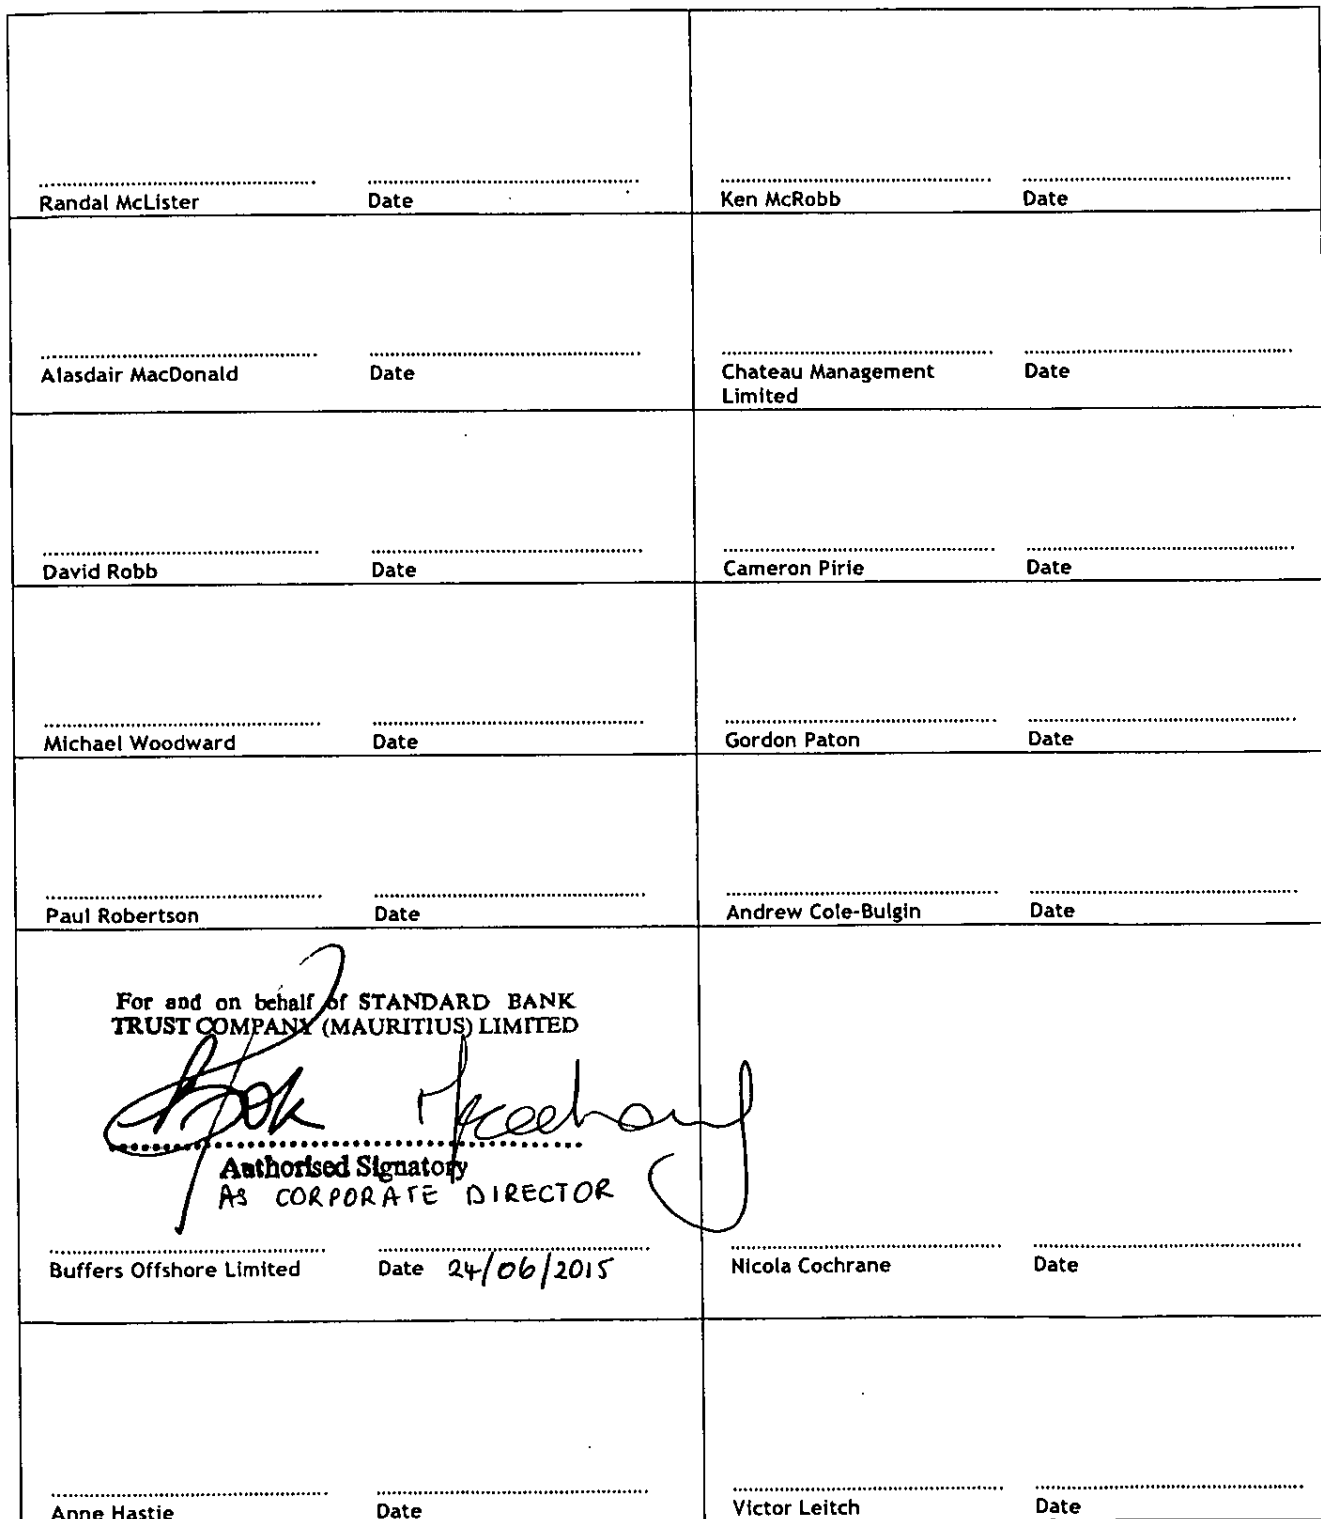 Randal McLister Date Ken McRobb Date
Alasdair MacDonald Date Chateau Management Date
Limited
David Robb Date Cameron Pirie Date
Michael Woodward Date Gordon Paton Date
Paul Robertson Date Andrew Cole-Bulgin Date
For and on behalf of STANDARD BANK
TRUST COMPANY (MAURITIUS) LIMITED
Authorised Signatory
AS CORPORATE DIRECTOR
Buffers Offshore Limited Date 24/06/2015 Nicola Cochrane Date
Anne Hastie Date Victor Leitch Date